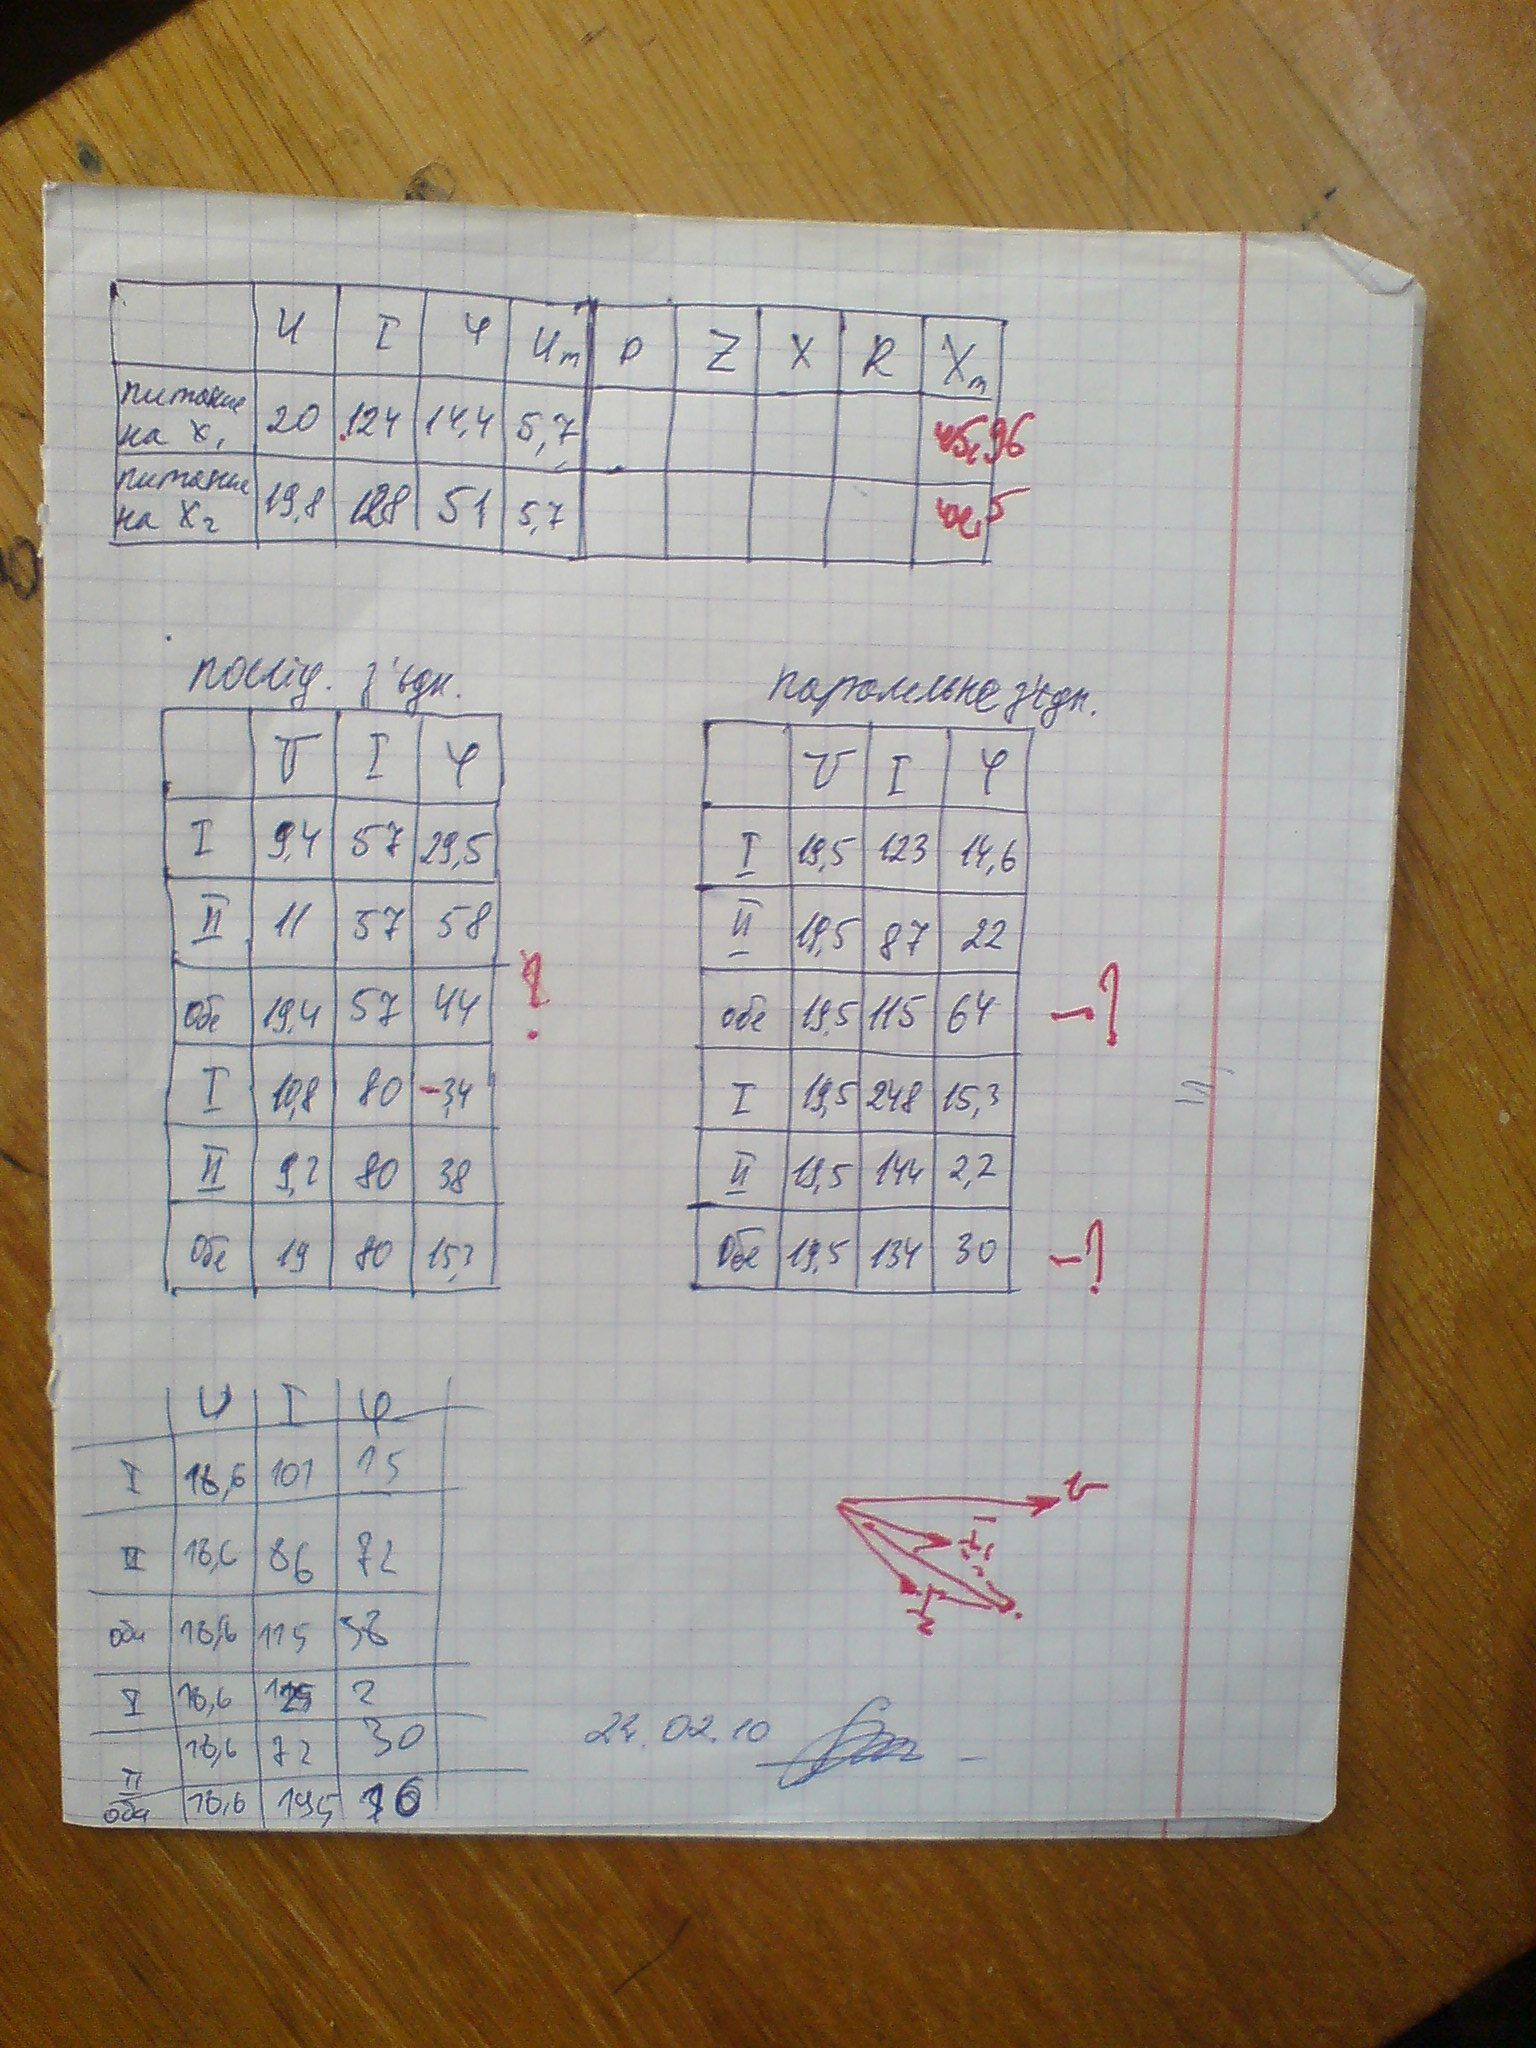 U I φ Um P Z X R Xm
питание на X₁ 20 124 14,4 5,7 45,96
питание на X₂ 19,8 128 51 5,7
послід. з'єдн.
U I φ
I 9,4 57 29,5
II 11 57 58
Обе 19,4 57 44 ?
I 10,8 80 -3,4
II 9,2 80 38
Обе 19 80 15,3
паралельне з'єдн.
U I φ
I 19,5 123 14,6
II 19,5 87 22
обе 19,5 115 64 -?
I 19,5 248 15,3
II 19,5 144 2,2
Обе 19,5 134 30 -?
U I φ
I 18,6 101 15
II 18,6 86 72
оби 18,6 115 38
I 18,6 125 2
II 18,6 72 30
оби 18,6 195 16
U
I₁
I₂
24.02.10